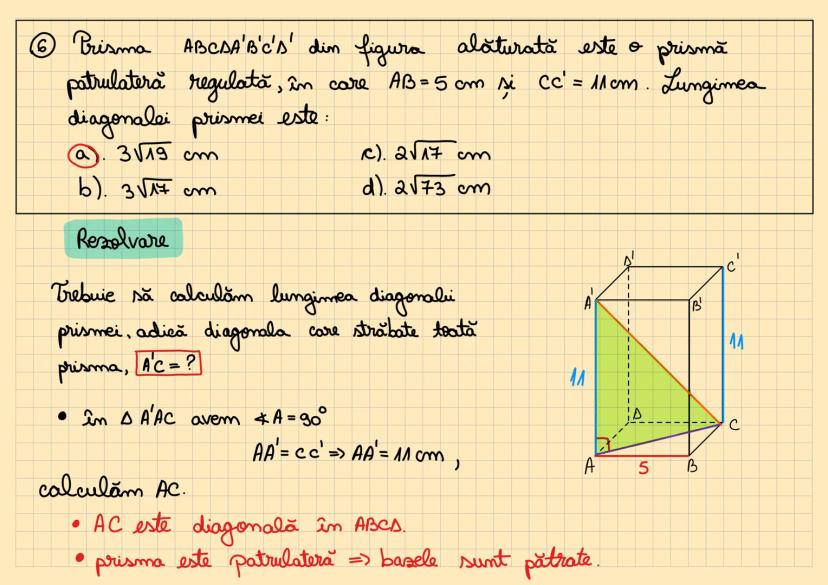 ⑥ Prisma ABCDA'B'C'D' din figura alăturată este o prismă
patrulateră regulată, în care AB = 5 cm și CC' = 11 cm. Lungimea
diagonalei prismei este:
a). 3√19 cm
c). 2√17 cm
b). 3√17 cm
d). 2√73 cm
Rezolvare
Trebuie să calculăm lungimea diagonalei
prismei, adică diagonala care străbate toată
prisma, A'C = ?
• în Δ A'AC avem ∢A = 90°
AA' = CC' ⇒ AA' = 11 cm,
calculăm AC.
• AC este diagonală în ABCD.
• prisma este patrulateră ⇒ bazele sunt pătrate.
D'
C'
A'
B'
11
11
D
C
A
5
B